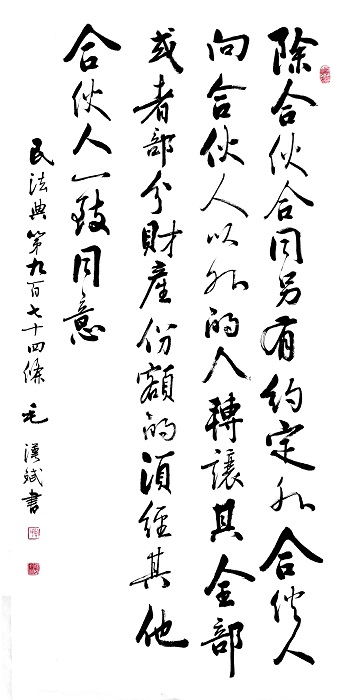 除合伙合同另有约定外合伙人
向合伙人以外的人轉讓其全部
或者部分財產份額的須經其他
合伙人一致同意
民法典第九百七十四條 毛漢斌書